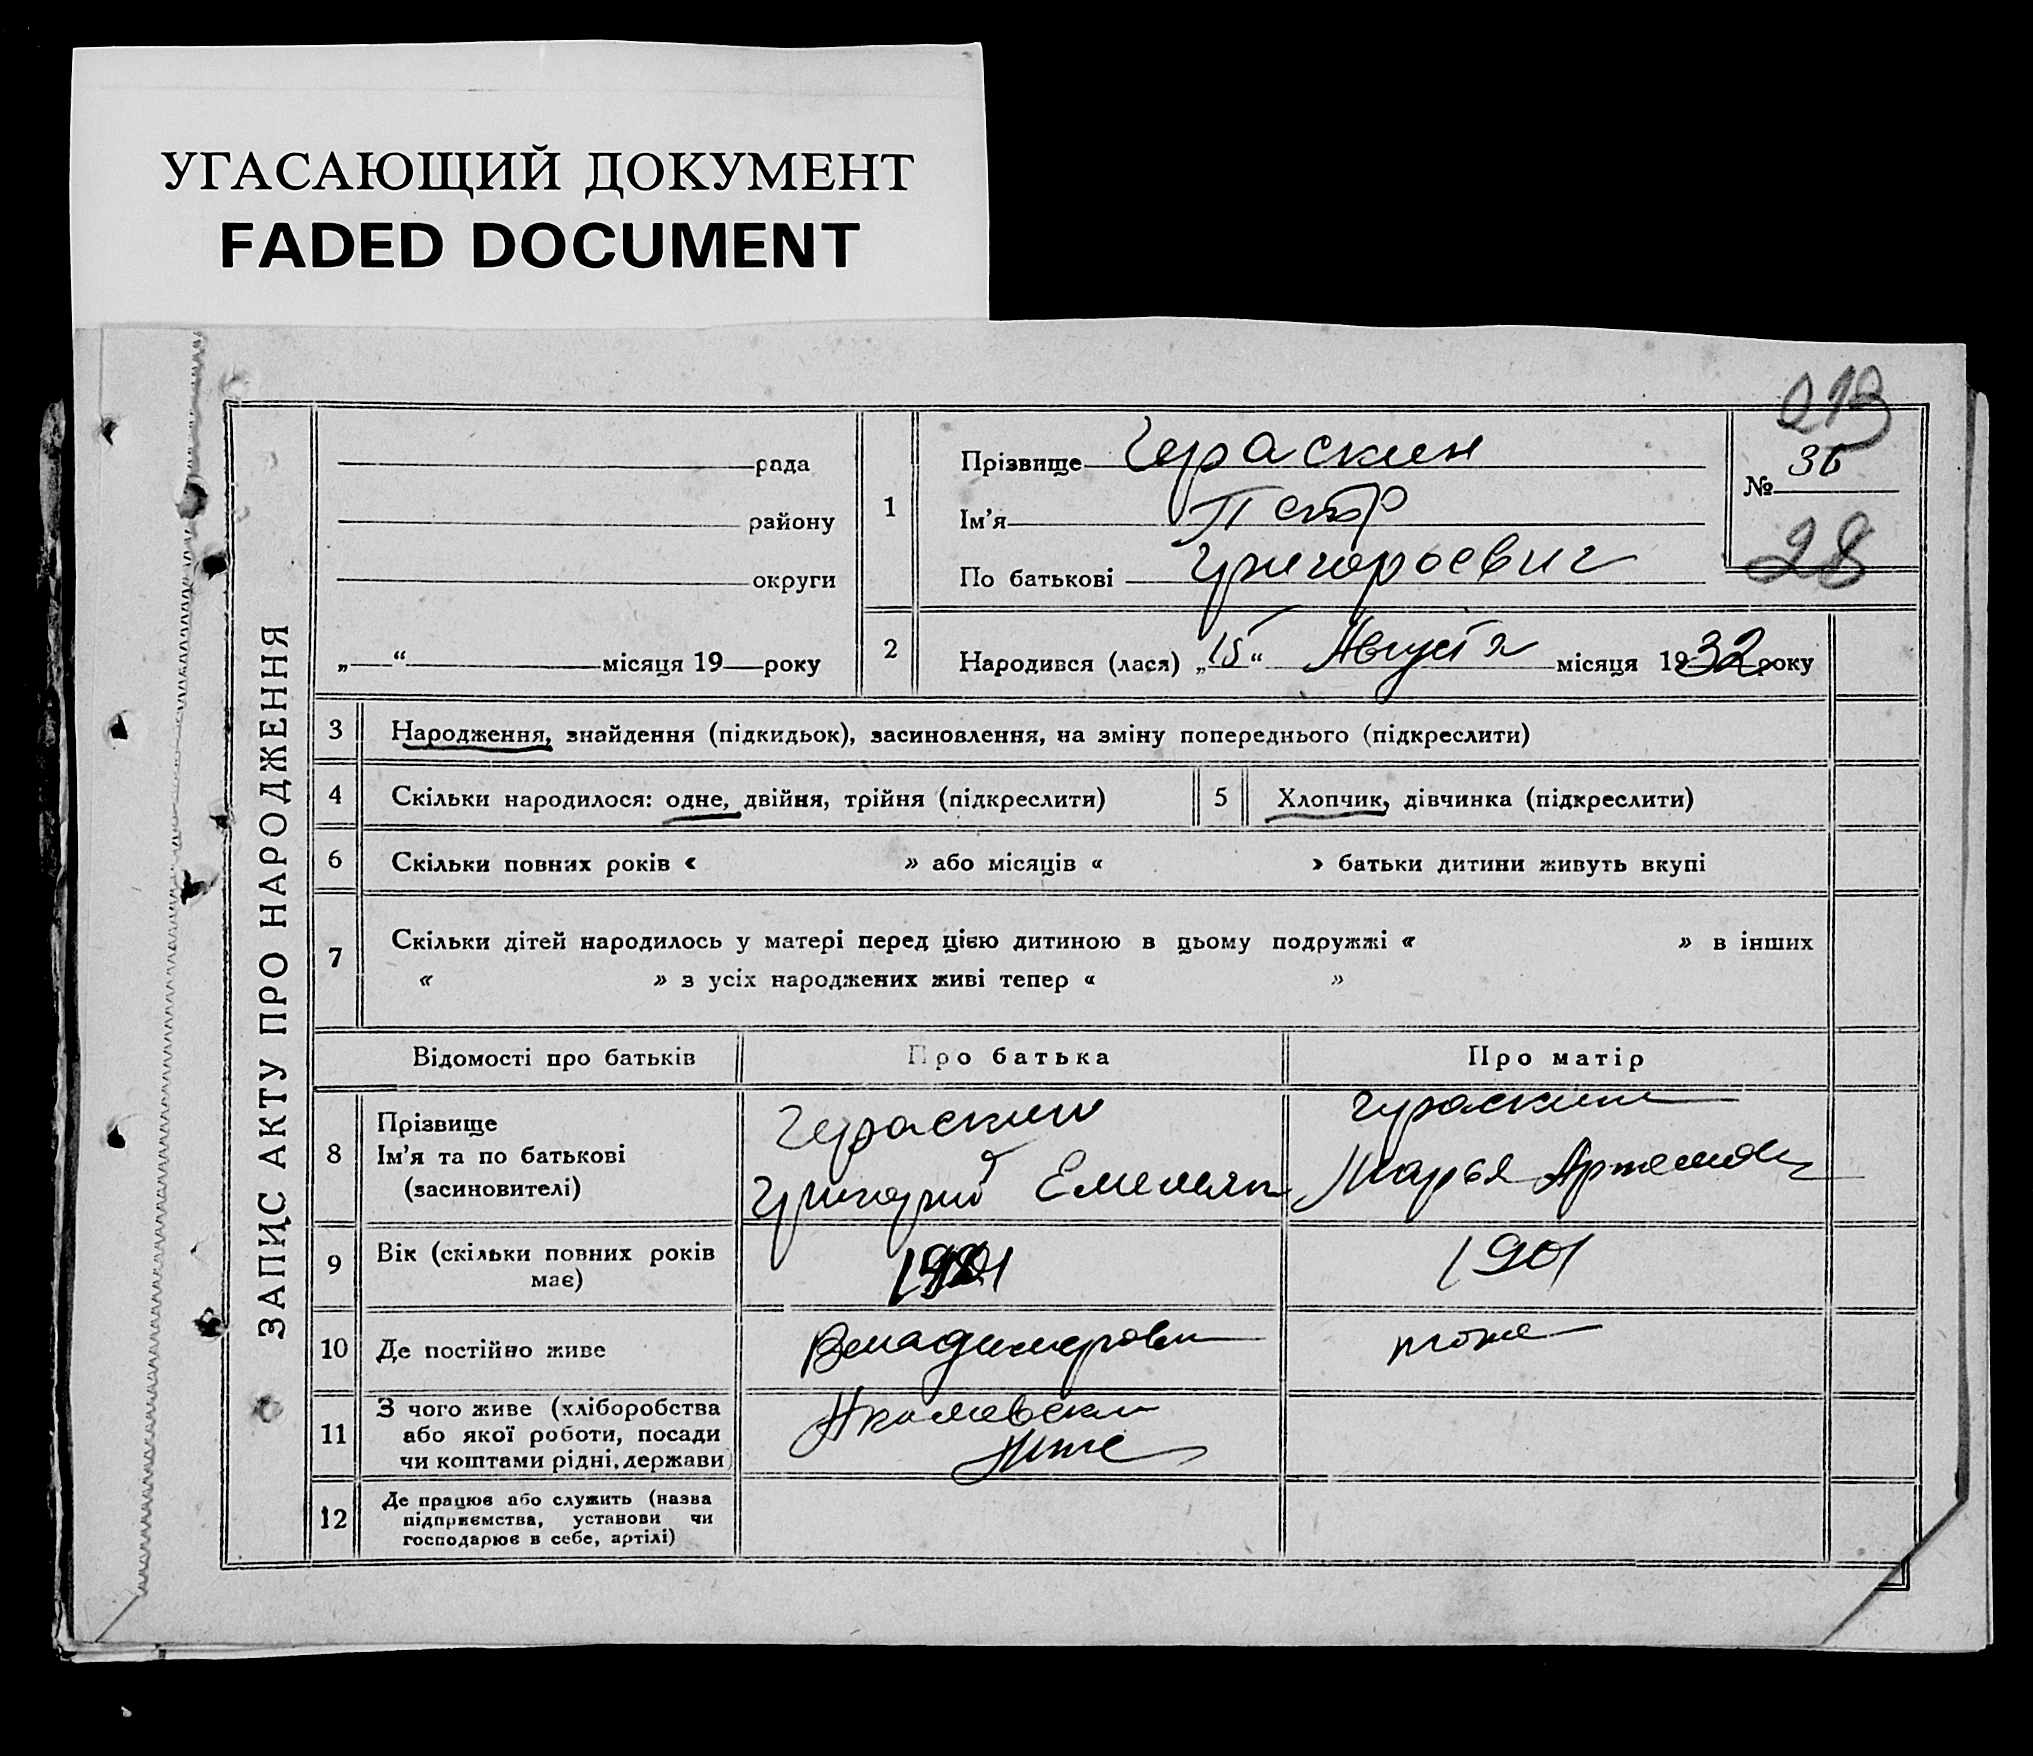 УГАСАЮЩИЙ ДОКУМЕНТ
FADED DOCUMENT
213
ЗАПИС АКТУ ПРО НАРОДЖЕННЯ
рада
району
округи
„ “ місяця 19 року
1
Прізвище Гераскин
Ім'я Петр
По батькові Григорьевич
№ 36
28
2
Народився (лася) „15“ Августа місяця 1932 року
3 Народження, знайдення (підкидьок), засиновлення, на зміну попереднього (підкреслити)
4 Скільки народилося: одне, двійня, трійня (підкреслити)
5 Хлопчик, дівчинка (підкреслити)
6 Скільки повних років « » або місяців « » батьки дитини живуть вкупі
7 Скільки дітей народилось у матері перед цією дитиною в цьому подружжі « » в інших
« » з усіх народжених живі тепер « »
Відомості про батьків
Про батька
Про матір
8 Прізвище
Ім'я та по батькові
(засиновителі)
Гераскин
Григорий Емельян
Гераскина
Марья Артемов
9 Вік (скільки повних років
має)
1901
1901
10 Де постійно живе
Владимировк
тоже
11 З чого живе (хліборобства
або якої роботи, посади
чи коштами рідні, держави)
12 Де працює або служить (назва
підприємства, установи чи
господарює в себе, артілі)